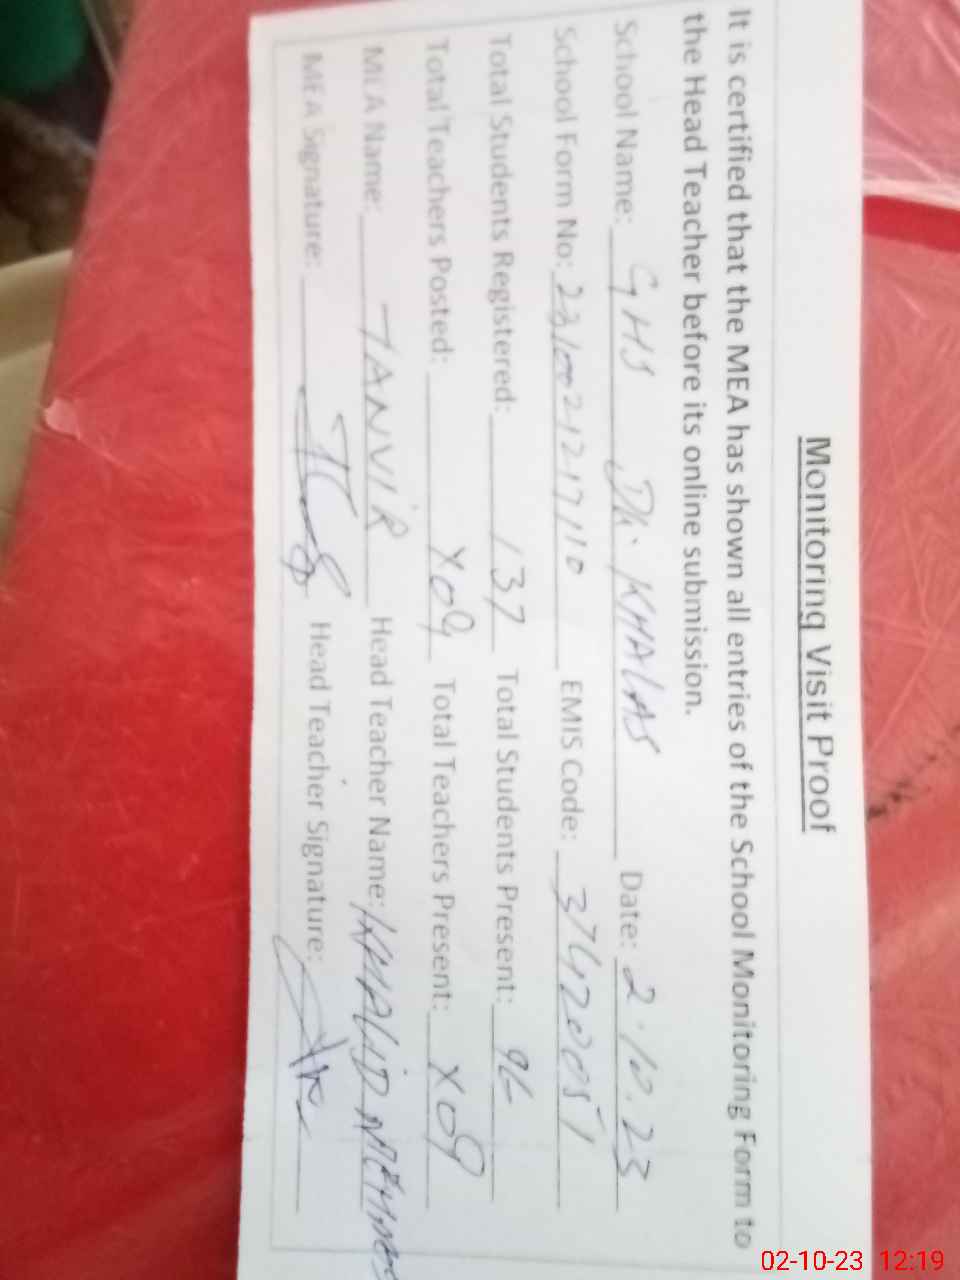 Monitoring Visit Proof
It is certified that the MEA has shown all entries of the School Monitoring Form to
the Head Teacher before its online submission.
School Name: GHS DK. KHALAS Date: 2.10.23
School Form No: 2310021217110 EMIS Code: 37420051
Total Students Registered: 137 Total Students Present: 96
Total Teachers Posted: X09 Total Teachers Present: X09
MEA Name: TANVIR Head Teacher Name: KHALID
MEA Signature: Head Teacher Signature:
02-10-23 12:19